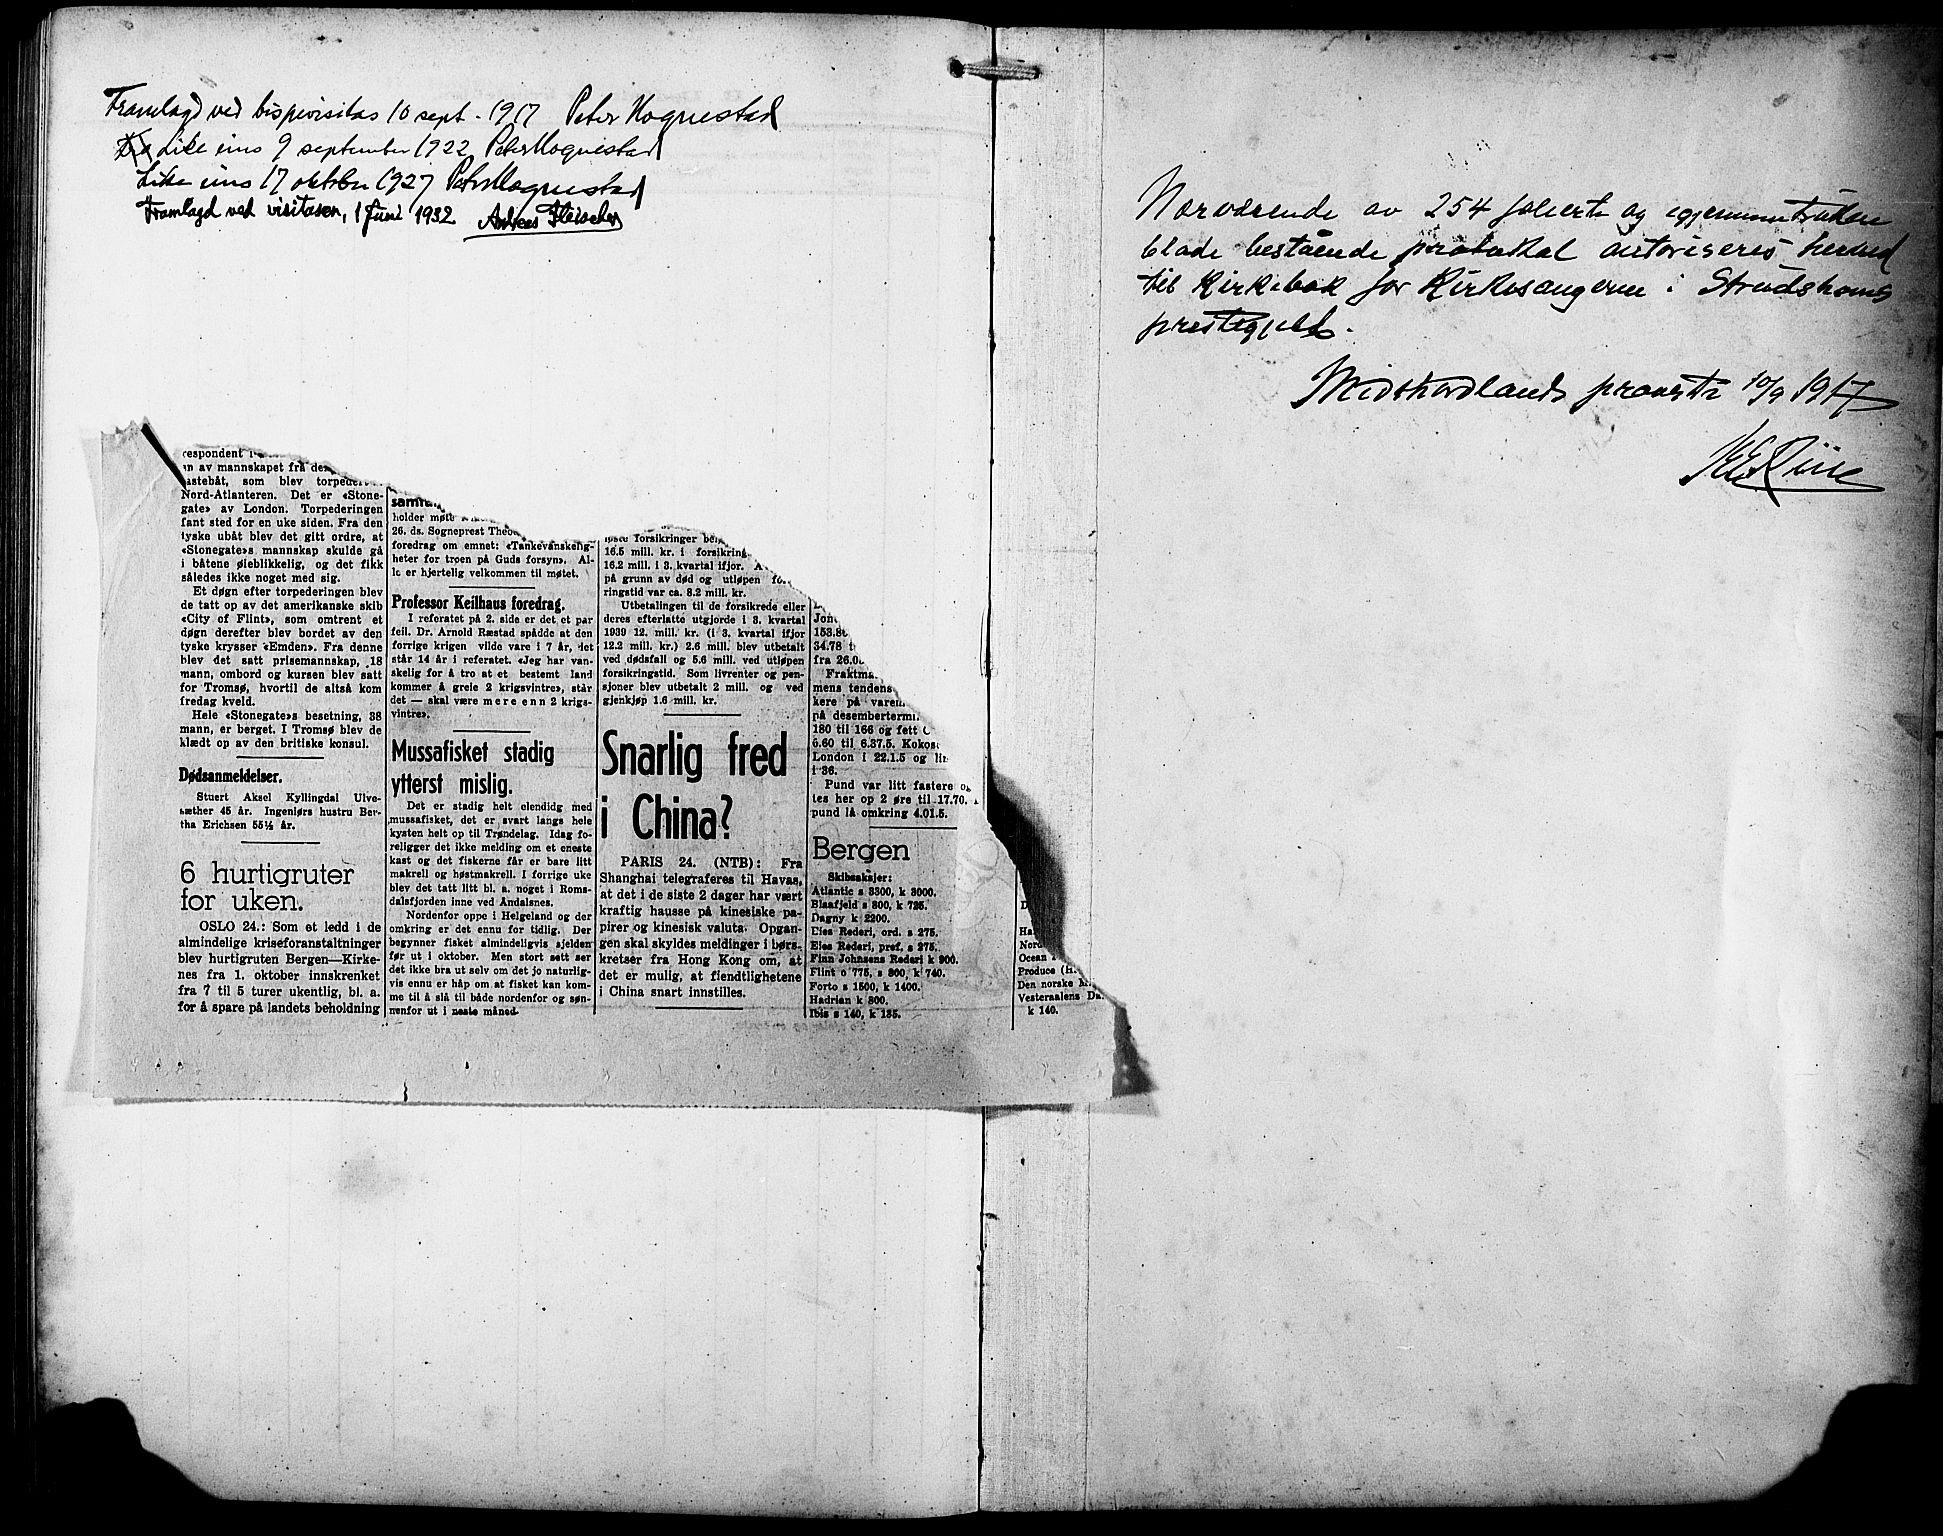 Framlagd ved bispevisitas 10 sept. 1917 Peter Hognestad
Like eins 9 september 1922 Peter Hognestad
Like eins 17 oktober 1927 Peter Hognestad
Framlagd ved visitasen, 1 Juni 1932 Andreas Fleischer
respondent
av mannskapet fra
lastebåt, som blev
Nord-Atlanteren. Det er «Stone-
gate» av London. Torpederingen
fant sted for en uke siden. Fra den
tyske ubåt blev det gitt ordre, at
«Stonegate»s mannskap skulde gå
i båtene øieblikkelig, og det fikk
således ikke noget med sig.
Et døgn efter torpederingen blev
de tatt op av det amerikanske skib
«City of Flint», som omtrent et
døgn derefter blev bordet av den
tyske krysser «Emden». Fra denne
blev det satt prisemannskap, 18
mann, ombord og kursen blev satt
for Tromsø, hvortil de altså kom
fredag kveld.
Hele «Stonegate»s besetning, 38
mann, er berget. I Tromsø blev de
klædt op av den britiske konsul.
Dødsanmeldelser.
Stuert Aksel Kyllingdal Ulve-
sæther 45 år. Ingeniørs hustru Ber-
tha Erichsen 55½ år.
6 hurtigruter
for uken.
OSLO 24.: Som et ledd i de
almindelige kriseforanstaltninger
blev hurtigruten Bergen—Kirke-
nes fra 1. oktober innskrenket
fra 7 til 5 turer ukentlig, bl. a.
for å spare på landets beholdning
holder møte
26. ds. Sogneprest
foredrag om emnet: «Tankevanskelig-
heter for troen på Guds forsyn». Al-
le er hjertelig velkommen til møtet.
Professor Keilhaus foredrag.
I referatet på 2. side er det et par
feil. Dr. Arnold Ræstad spådde at den
forrige krigen vilde vare i 7 år, det
står 14 år i referatet. «Jeg har van-
skelig for å tro at et bestemt land
kommer å greie 2 krigsvintre», står
det — skal være mere enn 2 krigs-
vintre».
Mussafisket stadig
ytterst mislig.
Det er stadig helt elendidg med
mussafisket, det er svart langs hele
kysten helt op til Trøndelag. Idag fo-
religger det ikke melding om et eneste
kast og det fiskerne får er bare litt
makrell og høstmakrell. I forrige uke
blev det tatt litt bl. a. noget i Roms-
dalsfjorden inne ved Åndalsnes.
Nordenfor oppe i Helgeland og der
omkring er det ennu for tidlig. Der
begynner fisket almindeligvis sjelden
før ut i oktober. Men stort sett ser
det ikke bra ut selv om det jo naturlig-
vis ennu er håp om at fisket kan kom-
me til å slå til både nordenfor og søn-
nenfor ut i neste måned.
forsikringer
16.5 mill. kr. i
16.2 mill. i 3. kvartal ifjor.
på grunn av død og utløpen
ringstid var ca. 8.2 mill. kr.
Utbetalingen til de forsikrede eller
deres efterlatte utgjorde i 3. kvartal
1939 12. mill. kr. (i 3. kvartal ifjor
12.2 mill. kr.) 2.6 mill. blev utbetalt
ved dødsfall og 5.6 mill. ved utløpen
forsikringstid. Som livrenter og pen-
sjoner blev utbetalt 2 mill. og ved
gjenkjøp 1.6 mill. kr.
Snarlig fred
i China?
PARIS 24. (NTB): Fra
Shanghai telegraferes til Havas,
at det i de siste 2 dager har vært
kraftig hausse på kinesiske pa-
pirer og kinesisk valuta. Opgan-
gen skal skyldes meldinger i børs-
kretser fra Hong Kong om, at
det er mulig, at fiendtlighetene
i China snart innstilles.
34.78
fra
mens
kere på
på
180 til 166 og fett
6.60 til 6.37.5.
London i 22.1.5 og
i 36.
Pund var litt fastere
tes her op 2 øre til 17.70.
pund lå omkring 4.01.5.
Bergen
Skibsaksjer:
Atlantic s 3300, k 3000.
Blaafjeld s 800, k 725.
Dagny k 2200.
Eies Rederi, ord. s 275.
Eies Rederi, pref. s 275.
Finn Johnsens Rederi k 900.
Flint o 775, s 800, k 740.
Forto s 1500, k 1400.
Hadrian k 300.
Ibis s 140, k 135.
Ocean
Produce (H.
Den norske
Vesteraalens
k 140.
Nærværende av 254 folierte og igjennemtrukne
blade bestående protokol autoriseres herved
til Kirkebok for Kirkesangeren i Strudshavns
prestegjeld.
Midthordlands prosti 10/9 1917